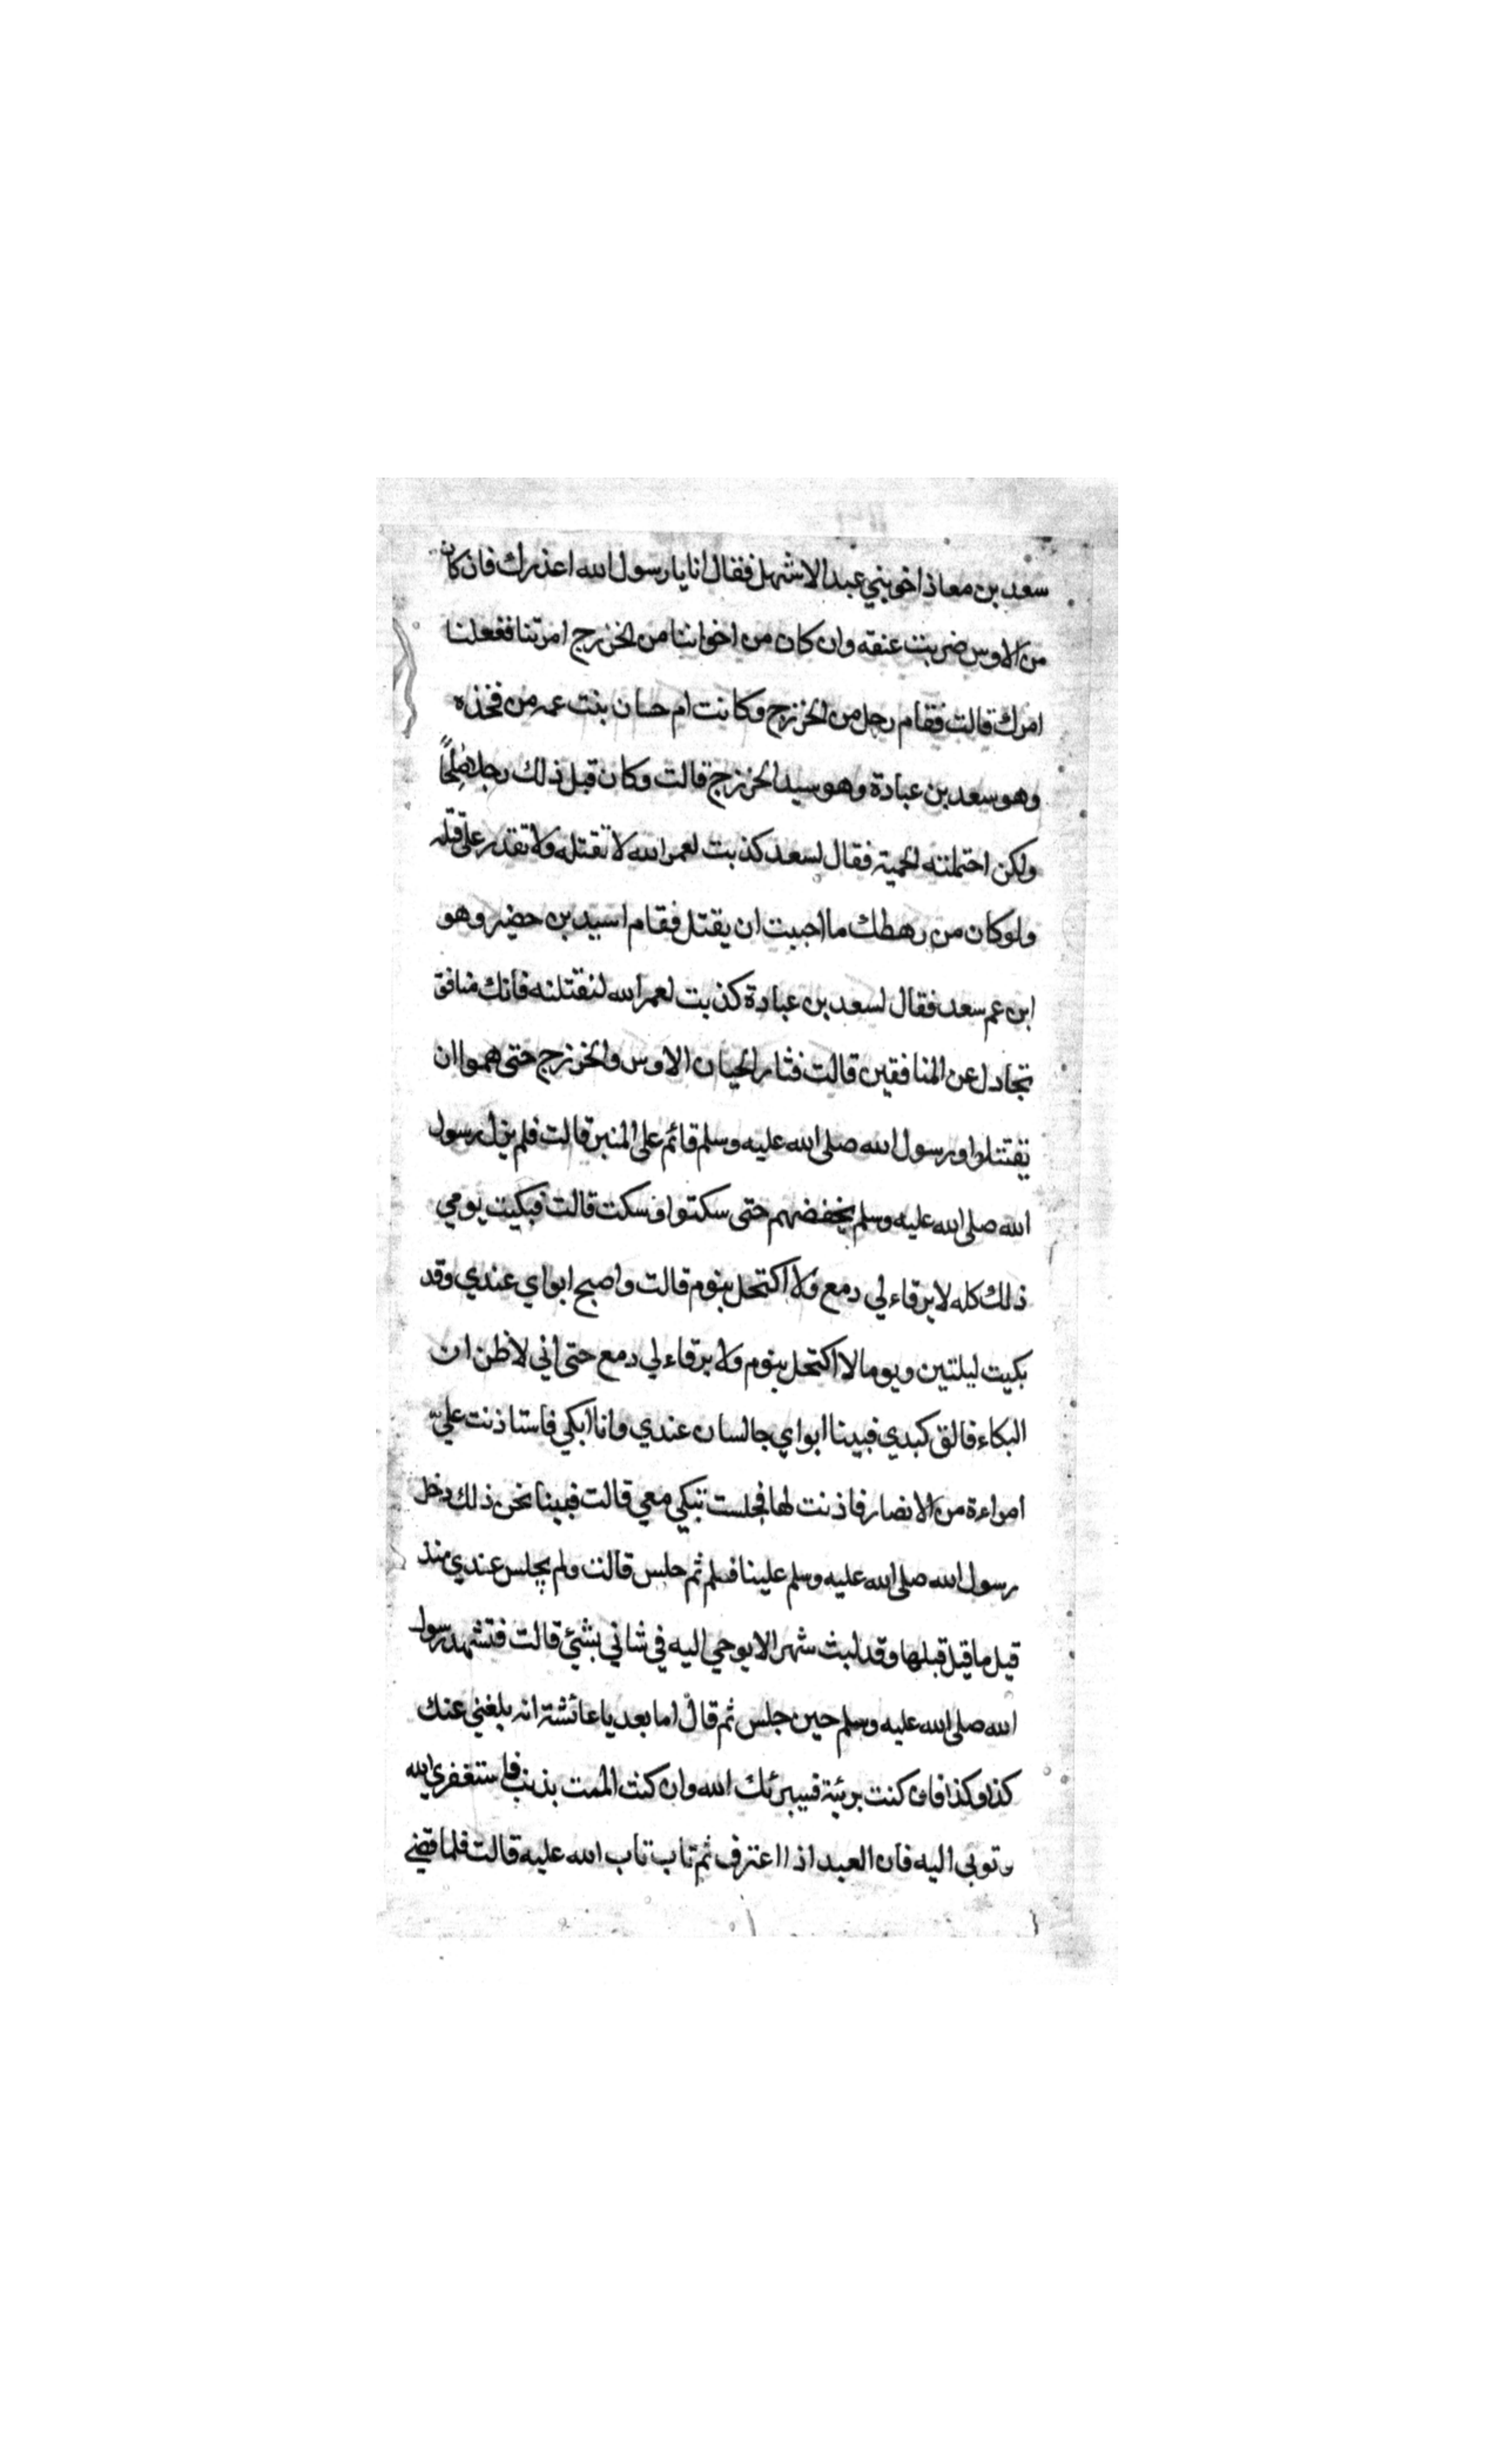 سعد بن معاذ اخو بني عبد الاشهل فقال انا يا رسول الله اعذرك فان كان
من الاوس ضربت عنقه وان كان من اخواننا من الخزرج امرتنا ففعلنا
امرك قالت فقام رجل من الخزرج وكانت ام حسان بنت عمه من فخذه
وهو سعد بن عبادة وهو سيد الخزرج قالت وكان قبل ذلك رجلا صلحًا
ولكن احتملته الحمية فقال لسعد كذبت لعمر الله لا تقتله ولا تقدر على قتله
ولو كان من رهطك ما احببت ان يقتل فقام اسيد بن حضير وهو
ابن عم سعد فقال لسعد بن عبادة كذبت لعمر الله لنقتلنه فانك منافق
تجادل عن المنافقين قالت فثار الحيان الاوس والخزرج حتى هموا ان
يقتتلوا ورسول الله صلى الله عليه وسلم قائم على المنبر قالت فلم يزل رسول
الله صلى الله عليه وسلم يخفضهم حتى سكتوا وسكت قالت فبكيت يومي
ذلك كله لا يرقاء لي دمع ولا اكتحل بنوم قالت واصبح ابواي عندي وقد
بكيت ليلتين ويوما لا اكتحل بنوم ولا يرقاء لي دمع حتى اني لاظن ان
البكاء فالق كبدي فبينا ابواي جالسان عندي وانا ابكي فاستاذنت عليّ
امراءة من الانصار فاذنت لها فجلست تبكي معي قالت فبينا نحن ذلك دخل
رسول الله صلى الله عليه وسلم علينا فسلم ثم جلس قالت ولم يجلس عندي منذ
قيل ما قيل قبلها وقد لبث شهرا لا يوحي اليه في شاني بشئ قالت فتشهد رسول
الله صلى الله عليه وسلم حين جلس ثم قال اما بعد يا عائشة انه بلغني عنك
كذا وكذا فان كنت بريئة فسيبرئك الله وان كنت الممت بذنب فاستغفري الله
وتوبي اليه فان العبد اذا اعترف ثم تاب تاب الله عليه قالت فلما قضى